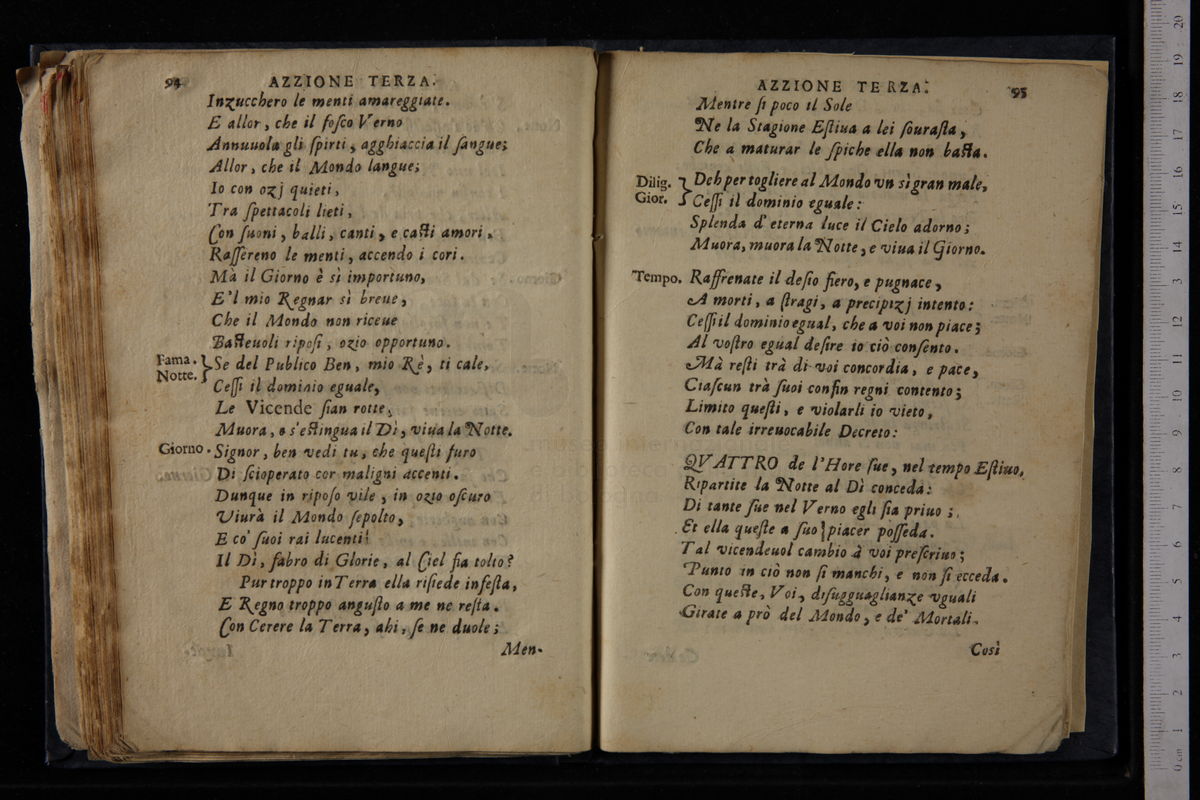 94 AZZIONE TERZA.
Inzucchero le menti amareggiate.
E allor, che il foſco Verno
Annuuola gli ſpirti, agghiaccia il ſangue;
Allor, che il Mondo langue;
Io con ozj quieti,
Tra ſpettacoli lieti,
Con ſuoni, balli, canti, e caſti amori,
Raſſereno le menti, accendo i cori.
Mà il Giorno è sì importuno,
E'l mio Regnar sì breue,
Che il Mondo non riceue
Baſteuoli ripoſi, ozio opportuno.
Fama. Notte. } Se del Publico Ben, mio Rè, ti cale,
Ceſſi il dominio eguale,
Le Vicende ſian rotte,
Muora, e s'eſtingua il Dì, viua la Notte.
Giorno. Signor, ben vedi tu, che queſti furo
Di ſcioperato cor maligni accenti.
Dunque in ripoſo vile, in ozio oſcuro
Viurà il Mondo ſepolto,
E co' ſuoi rai lucenti!
Il Dì, fabro di Glorie, al Ciel fia tolto?
Pur troppo in Terra ella riſiede infeſta,
E Regno troppo anguſto a me ne reſta.
Con Cerere la Terra, ahi, ſe ne duole;
Men-
AZZIONE TERZA. 95
Mentre ſi poco il Sole
Ne la Stagione Eſtiua a lei ſouraſta,
Che a maturar le ſpiche ella non baſta.
Dilig. Gior. } Deh per togliere al Mondo vn sì gran male,
Ceſſi il dominio eguale:
Splenda d'eterna luce il Cielo adorno;
Muora, muora la Notte, e viua il Giorno.
Tempo. Raffrenate il deſio fiero, e pugnace,
A morti, a ſtragi, a precipizj intento:
Ceſſi il dominio egual, che a voi non piace;
Al voſtro egual deſire io ciò conſento.
Mà reſti trà di voi concordia, e pace,
Ciaſcun trà ſuoi confin regni contento;
Limito queſti, e violarli io vieto,
Con tale irreuocabile Decreto:
QVATTRO de l'Hore ſue, nel tempo Eſtiuo,
Ripartite la Notte al Dì conceda:
Di tante ſue nel Verno egli ſia priuo;
Et ella queſte a ſuo piacer poſſeda.
Tal vicendeuol cambio à voi preſcriuo;
Punto in ciò non ſi manchi, e non ſi ecceda.
Con queſte, Voi, diſugguaglianze vguali
Girate a prò del Mondo, e de' Mortali.
Così